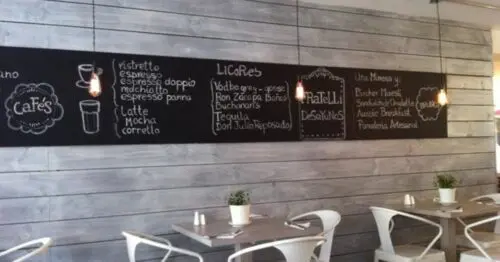 ano
CAFÉS
ristretto
espresso
espresso doppio
macchiatto
espresso panna
Latte
Mocha
corretto
LICORES
Vodka grey-goose
Ron Zacapa &
Buchanan's
Tequila
Don Julio Reposado
FRaTeLLi
DeSaYuNoS
Una Mimosa y:
Bircher Muesli
Aussie Breakfast
Panadería Artesanal